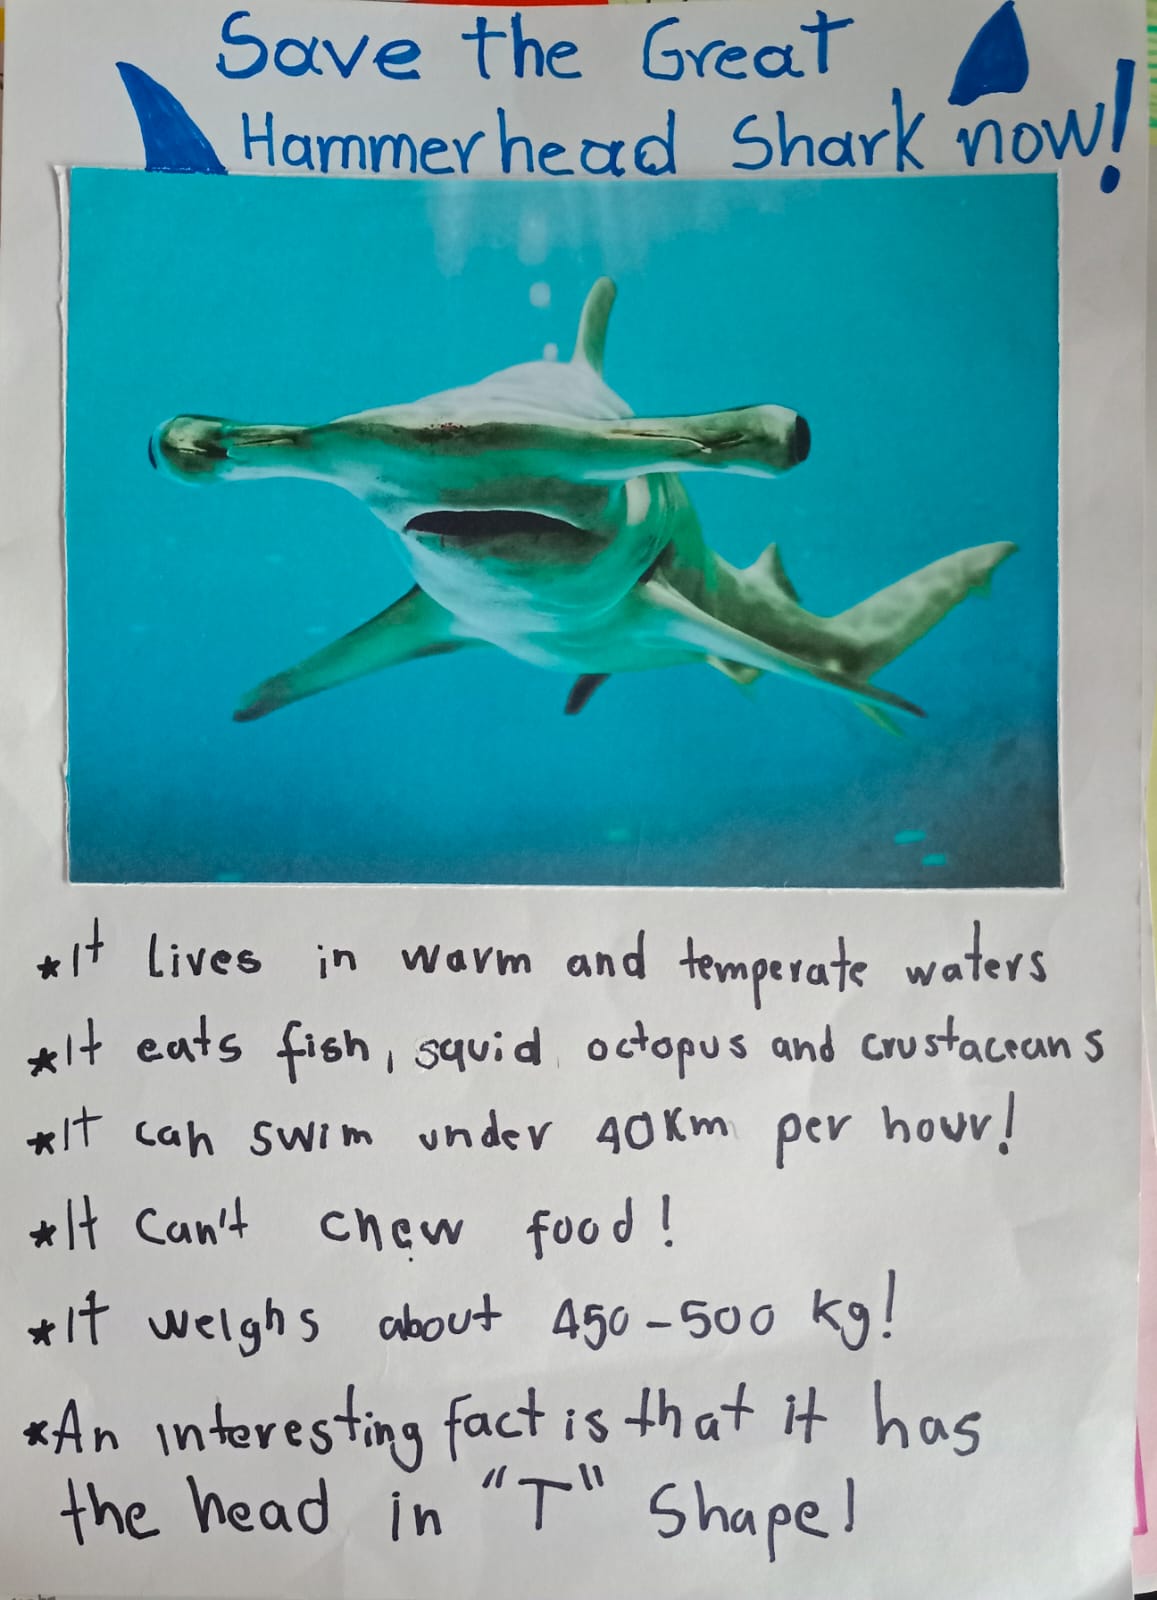 Save the Great
Hammerhead Shark now!
*It lives in warm and temperate waters
*It eats fish, squid, octopus and crustaceans
*It can swim under 40Km per hour!
*It can't chew food!
*It weighs about 450-500 kg!
*An interesting fact is that it has
the head in "T" Shape!